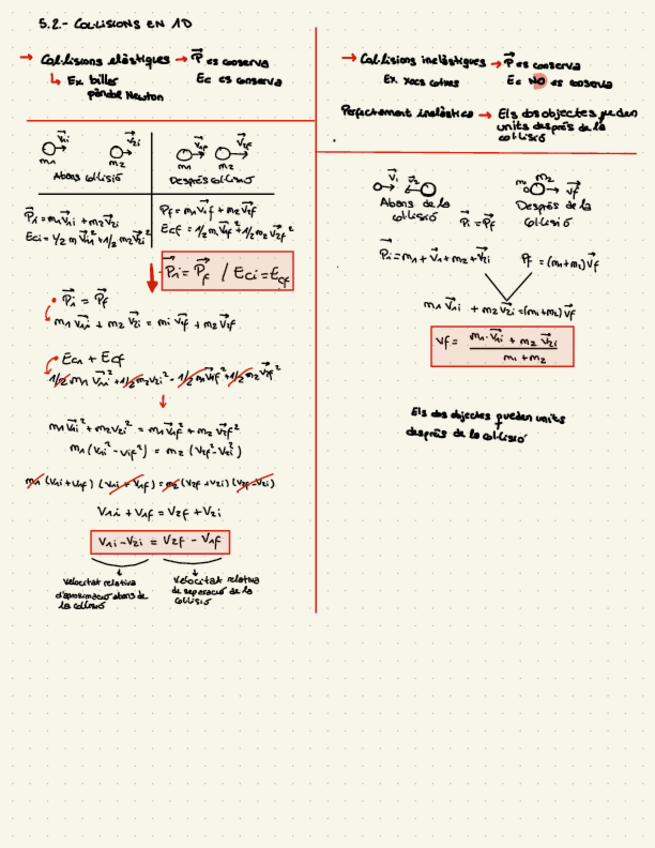 5.2.- COL·LISIONS EN 1D
→ Col·lisions elàstiques → P⃗ es conserva
↳ Ex billar Ec es conserva
pèndol Newton
m1 v⃗1i m2 v⃗2i
Abans col·lisió
m1 v⃗1f m2 v⃗2f
Després col·lisió
P⃗i = m1v⃗1i + m2v⃗2i
Eci = 1/2 m v⃗1i² + 1/2 m2v⃗2i²
Pf = m1v⃗1f + m2v⃗2f
Ecf = 1/2 m v⃗1f² + 1/2 m2v⃗2f²
P⃗i = P⃗f / Eci = Ecf
• P⃗i = P⃗f
m1 v⃗1i + m2 v⃗2i = m1 v⃗1f + m2 v⃗2f
• Eci + Ecf
1/2 m1 v⃗1i² + 1/2 m2v2i² = 1/2 m1v⃗1f² + 1/2 m2 v⃗2f²
m1v⃗1i² + m2v2i² = m1v⃗1f² + m2 v⃗2f²
m1 (v1i² - v1f²) = m2 (v2f² - v2i²)
m1 (v1i + v1f) (v1i + v1f) = m2 (v2f + v2i) (v2f - v2i)
V1i + V1f = V2f + V2i
V1i - V2i = V2f - V1f
velocitat relativa
d'aproximació abans de
la col·lisió
velocitat relativa
de separació de la
col·lisió
→ Col·lisions inelàstiques → P⃗ es conserva
Ex xocs cotxes Ec NO es conserva
Perfectament inelàstica → Els dos objectes queden
units després de la
col·lisió
v⃗1 v⃗2
Abans de la
col·lisió
P⃗i = P⃗f
m1 m2 v⃗f
Després de la
col·lisió
P⃗i = m1 + v⃗1 + m2 + v⃗2i
Pf = (m1+m2) v⃗f
m1 v⃗1i + m2 v⃗2i = (m1+m2) v⃗f
vf = m1 · v⃗1i + m2 v⃗2i
m1 + m2
Els dos objectes queden units
després de la col·lisió